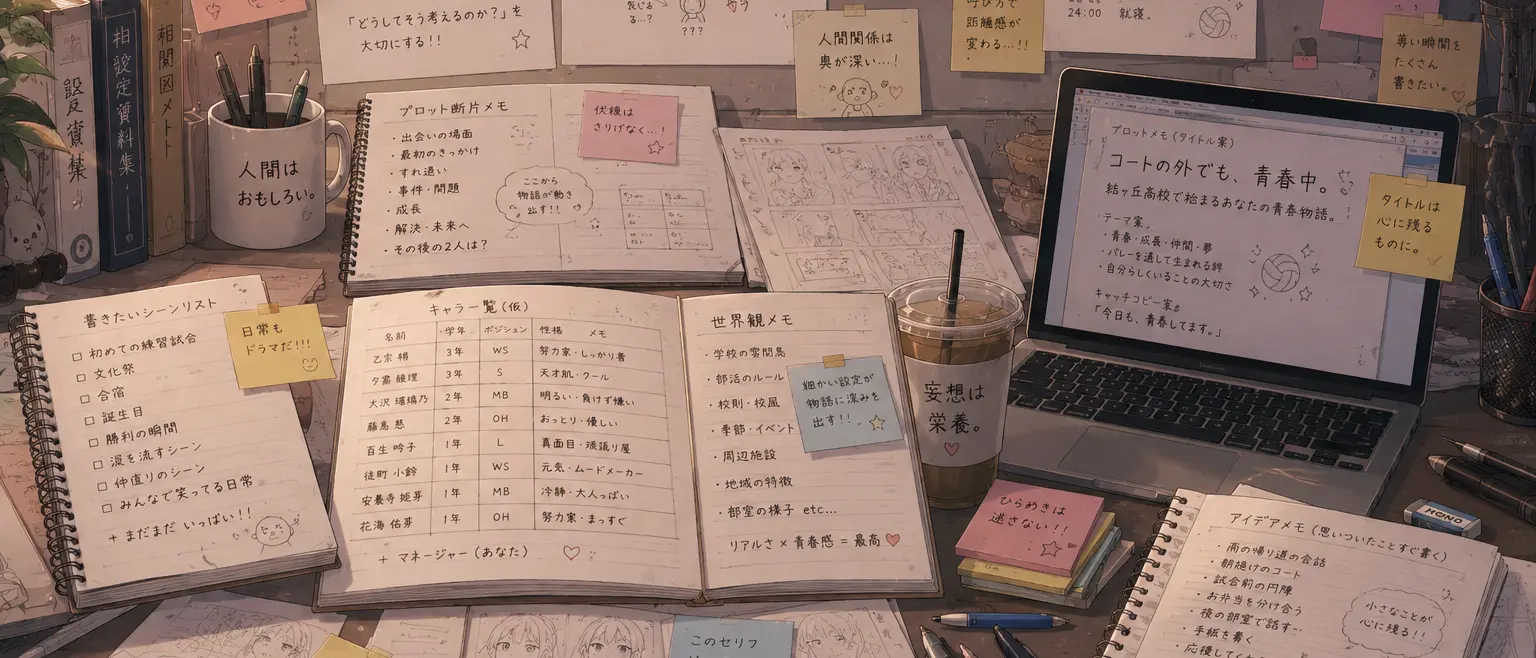 「どうしてそう考えるのか？」を
大切にする!!
???
人間関係は
奥が深い…!
距離感が
変わる…!!
24:00 就寝。
尊い瞬間を
たくさん
書きたい。
相関図ノート
人間は
おもしろい。
プロット断片メモ
・出会いの場面
・最初のきっかけ
・すれ違い
・事件・問題
・成長
・解決・未来へ
・その後の2人は？
伏線は
さりげなく…!
ここから
物語が動き
出す!!
プロットメモ(タイトル案)
コートの外でも、青春中。
結ヶ丘高校で始まるあなたの青春物語。
テーマ案。
・青春・成長・仲間・夢
・バレーを通して生まれる絆
・自分らしくいることの大切さ
キャッチコピー案。
「今日も、青春してます。」
タイトルは
心に残る
ものに。
書きたいシーンリスト
□ 初めての練習試合
□ 文化祭
□ 合宿
□ 誕生日
□ 勝利の瞬間
□ 涙を流すシーン
□ 仲直りのシーン
□ みんなで笑ってる日常
+ まだまだ いっぱい!!
日常も
ドラマだ!!!
キャラ一覧(仮)
名前 学年 ポジション 性格 メモ
乙宗 梢 3年 WS 努力家・しっかり者
夕霧 綴理 3年 S 天才肌・クール
大沢 瑠璃乃 2年 MB 明るい・負けず嫌い
藤島 慈 2年 OH おっとり・優しい
百生 吟子 1年 L 真面目・頑張り屋
徒町 小鈴 1年 WS 元気・ムードメーカー
安養寺 姫芽 1年 MB 冷静・大人っぽい
花海 佑芽 1年 OH 努力家・まっすぐ
+ マネージャー(あなた)
世界観メモ
・学校の雰囲気
・部活のルール
・校則・校風
・季節・イベント
・周辺施設
・地域の特徴
・部室の様子 etc…
リアルさ × 青春感 = 最高
細かい設定が
物語に深みを
出す!!
妄想は
栄養。
ひらめきは
逃さない!!
MONO
アイデアメモ(思いついたことすぐ書く)
・雨の帰り道の会話
・朝焼けのコート
・試合前の円陣
・お弁当を分け合う
・夜の部室で話す…
・手紙を書く
小さなことが
心に残る!!
このセリフ